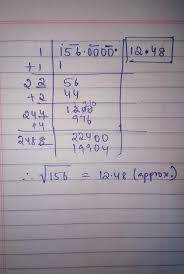 1 | 156.0000 | 12.48
+1 | 1
22 | 56
+2 | 44
244 | 1200
+4 | 976
2488 | 22400
19904
∴ √156 = 12.48 (approx.)